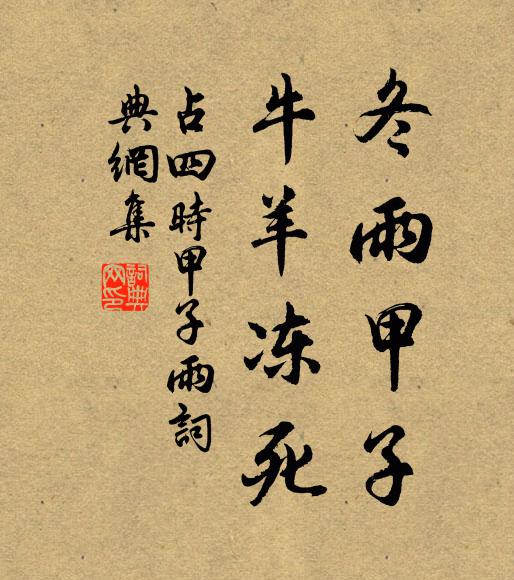 冬雨甲子
牛羊冻死
占四時甲子雨詞
典網集
詞典
网印